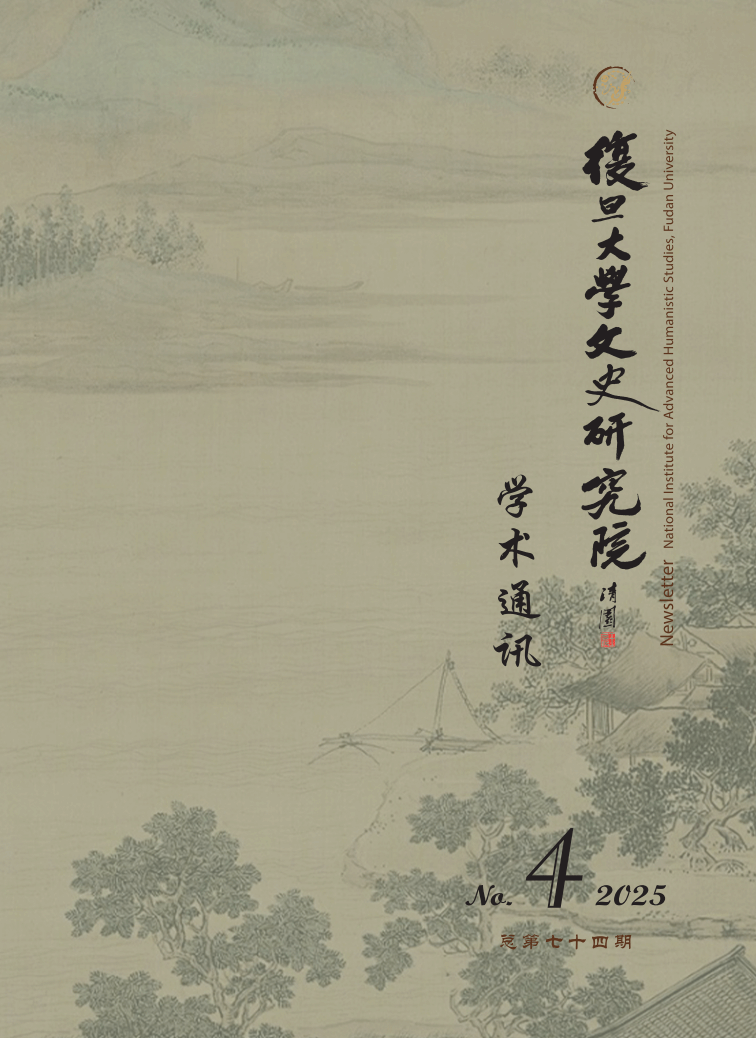 復旦大學文史研究院
清園
Newsletter National Institute for Advanced Humanistic Studies, Fudan University
学术通讯
No. 4 2025
总第七十四期